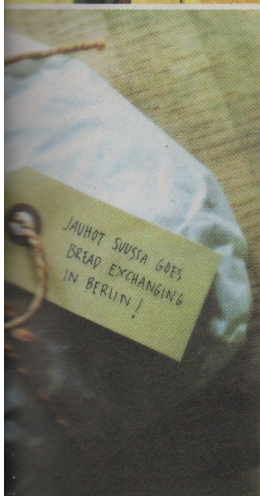 JAUHOT SUUSSA GOES
BREAD EXCHANGING
IN BERLIN!